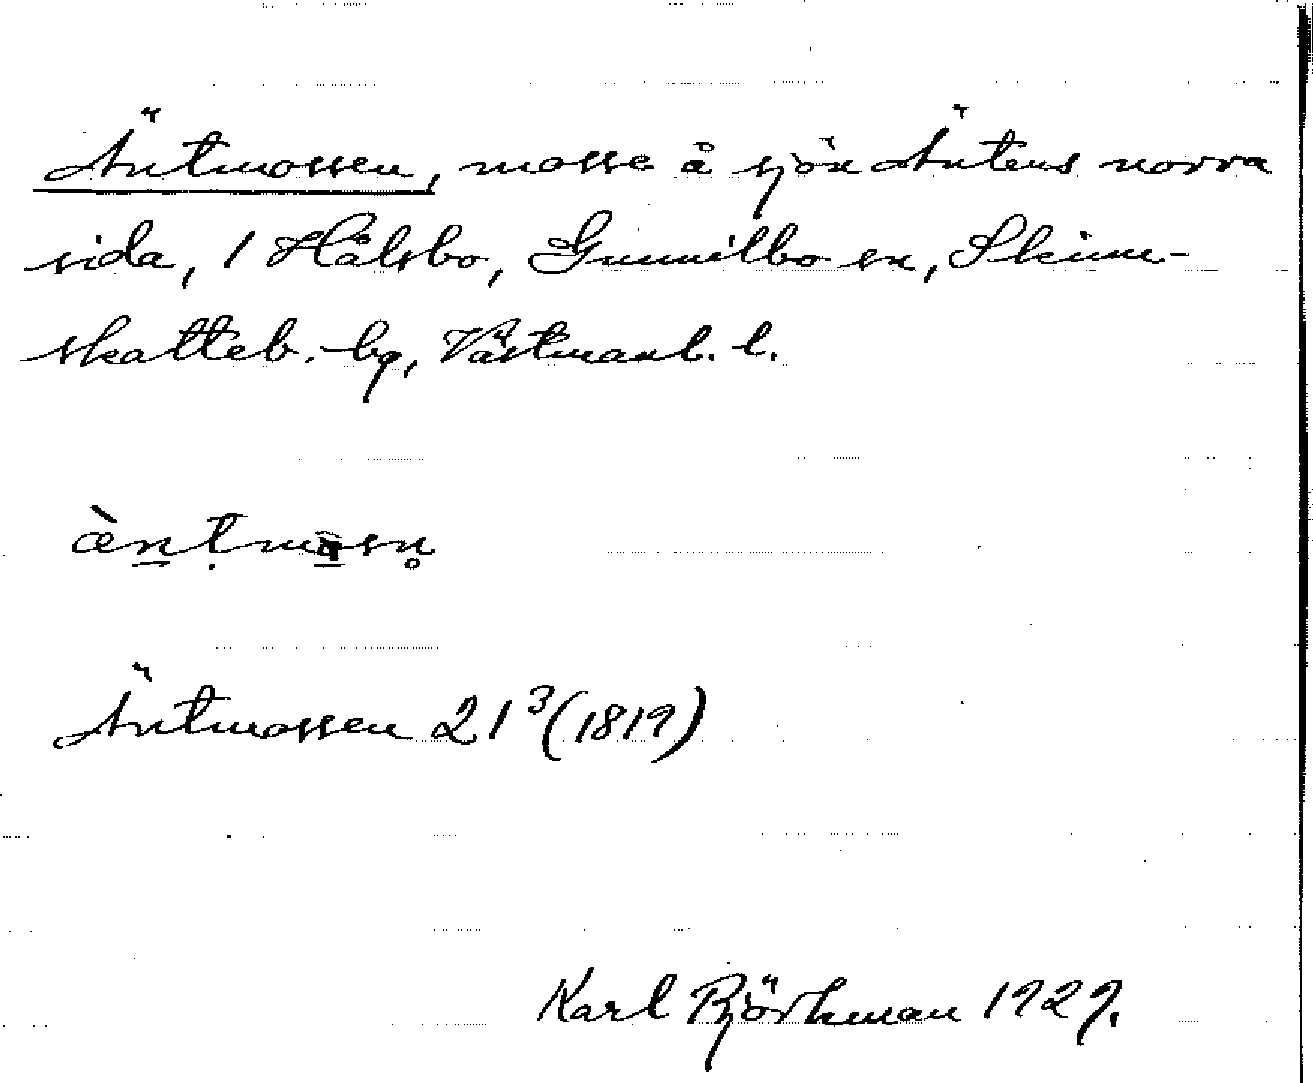 Äntmossen, mosse å sjön Äntens norra
sida, 1 Hålsbo, Gunnilbo sn, Skinn-
skatteb. bg, Västmanl. l.
æ̀ntmɑsn̥
Äntmossen 21³ (1819)
Karl Björkman 1929.